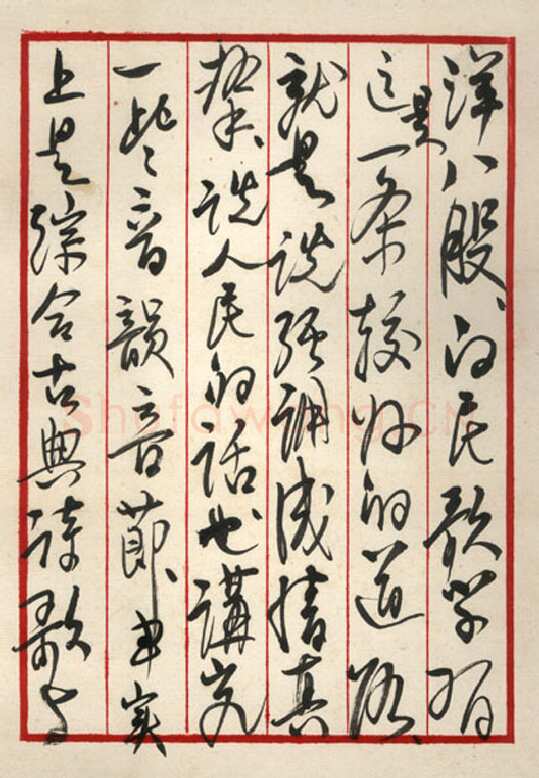 洋八股、向民歌学习
这是一条较好的道路、
就是说强调感情真
挚、说人民的话也讲究
一些音韵音节、事实
上是综合古典诗歌与
ShufaWang.CN